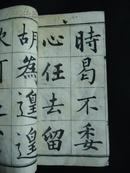 時曷不委
心任去留
胡為遑遑